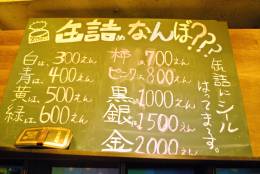 缶詰めなんぼ???
白は、300えん
青は、400えん
黄は、500えん
緑は、600えん
柿は700えん
ピンクは800えん
黒は1000えん
銀は1500えん
金は2000えん
缶詰にシール
はってま〜す。